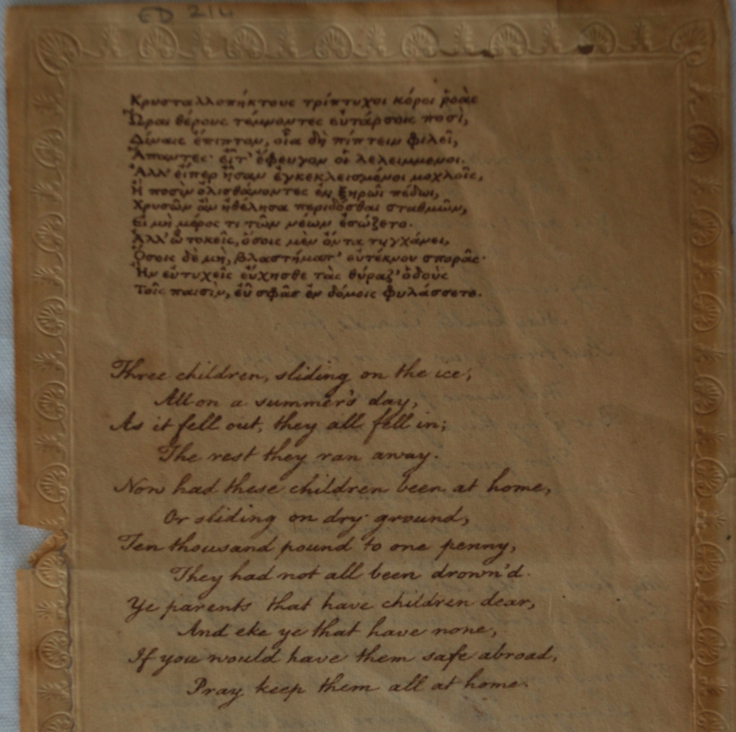 ED 214
Κρυσταλλοπήκτους τρίπτυχοι κόροι ῥοὰς
Ὥραι θέρους τέμνοντες εὐτάρσοις ποσὶ,
Δίναις ἔπιπτον, οἷα δὴ πίπτειν φιλεῖ,
Ἅπαντες· εἶτ' ἔφευγον οἱ λελειμμένοι.
Ἀλλ' εἴπερ ἦσαν ἐγκεκλεισμένοι μοχλοῖς,
Ἢ ποσὶν ὀλισθάνοντες ἐν ξηρῶι πέδωι,
Χρυσῶν ἂν ἠθέλησα περιδόσθαι σταθμῶν,
Εἰ μὴ μέρος τι τῶν νέων ἐσώζετο.
Ἀλλ' ὦ τοκεῖς, ὅσοις μὲν ὄντα τυγχάνει,
Ὅσοις δὲ μὴ, βλαστήματ' εὐτέκνου σπορᾶς·
Ἢν εὐτυχεῖς εὔχησθε τὰς θύραζ' ὁδοὺς
Τοῖς παισὶν, εὖ σφᾶς ἐν δόμοις φυλάσσετε.
Three children, sliding on the ice,
All on a summer's day,
As it fell out, they all fell in;
The rest they ran away.
Now had these children been at home,
Or sliding on dry ground,
Ten thousand pound to one penny,
They had not all been drown'd.
Ye parents that have children dear,
And eke ye that have none,
If you would have them safe abroad,
Pray keep them all at home.